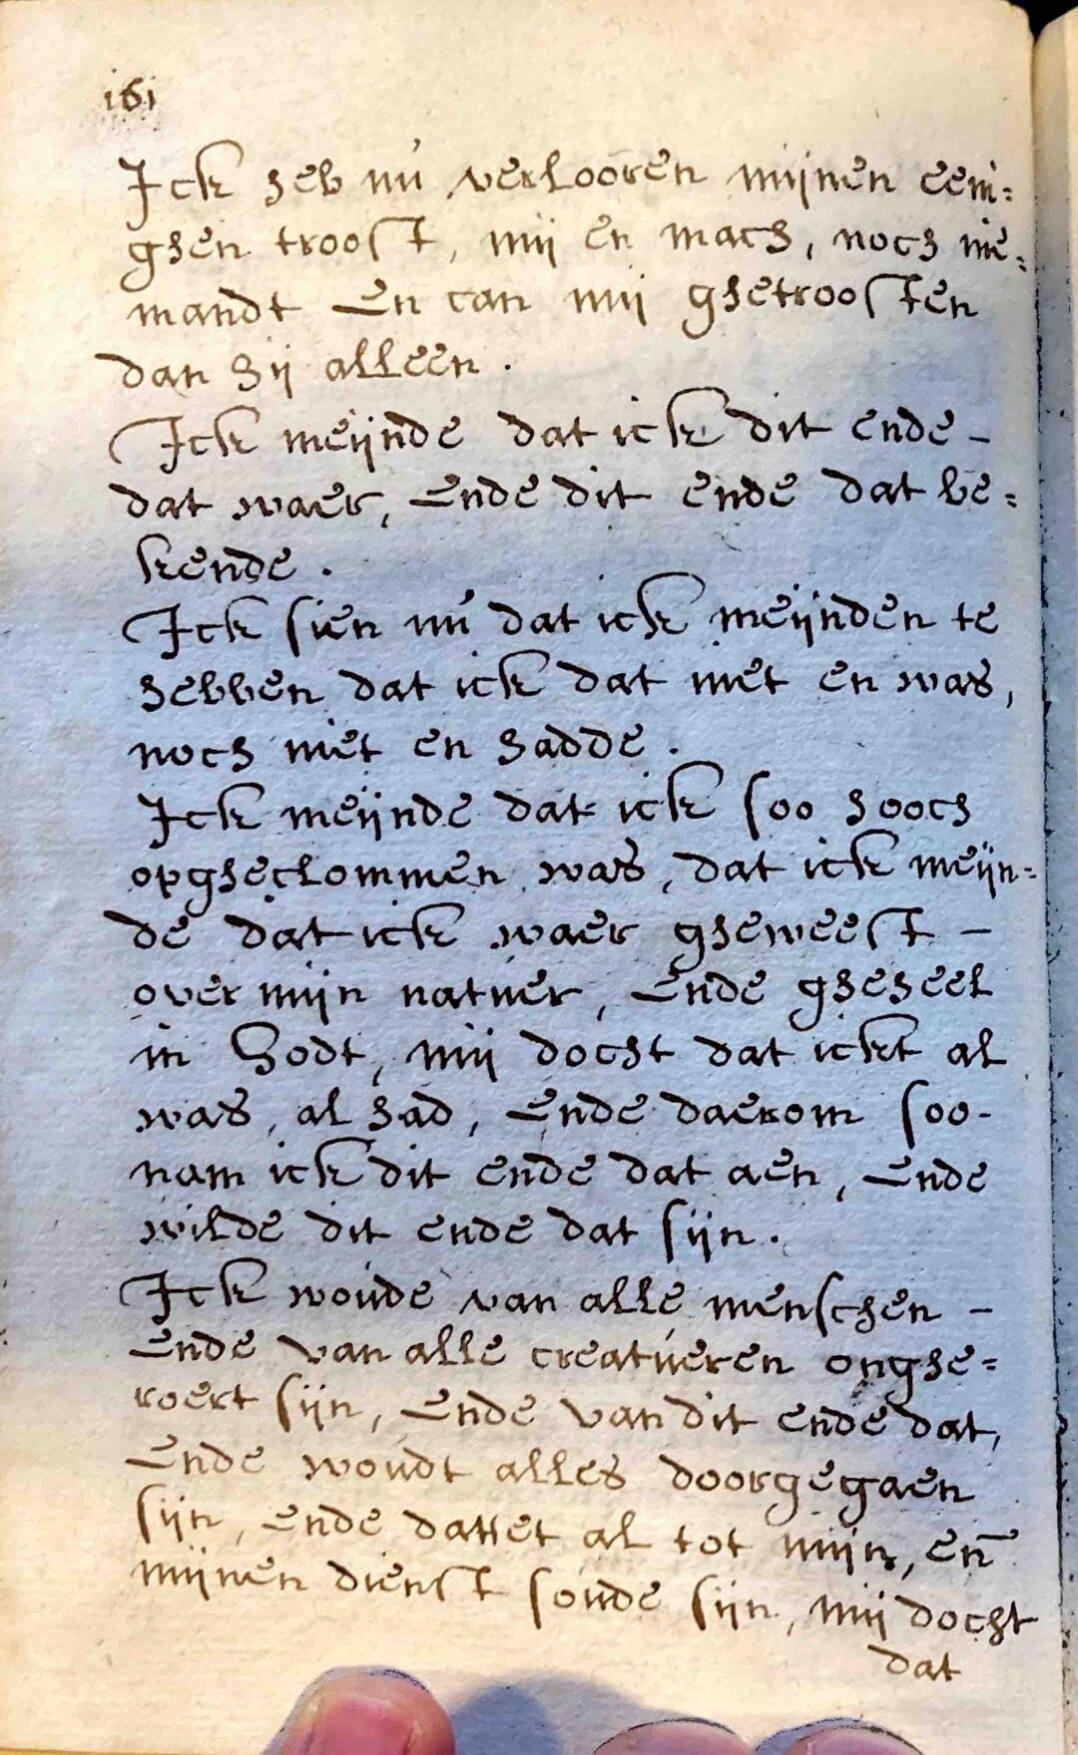 161
Ick heb nú verlooren mijnen eeni=
ghen troost, mij en mach, noch nie=
mandt en can mij ghetroosten
dan hij alleen.
Ick meijnde dat ick dit ende-
dat waer, ende dit ende dat be=
kende.
Ick sien nú dat ick meijnden te
hebben dat ick dat niet en was,
noch niet en hadde.
Ick meijnde dat ick soo hooch
opgheclommen was, dat ick meijn=
de dat ick waer gheweest -
over mijn natuer, ende gheheel
in Godt, mij docht dat ickt al
was, al had, ende daerom soo-
nam ick dit ende dat aen, ende
wilde dit ende dat sijn.
Ick woude van alle menschen -
ende van alle creatueren onghe=
roert sijn, ende van dit ende dat,
ende woudt alles doorgegaen
sijn, ende dattet al tot mijn, en̄
mijnen dienst soude sijn, mij docht
dat